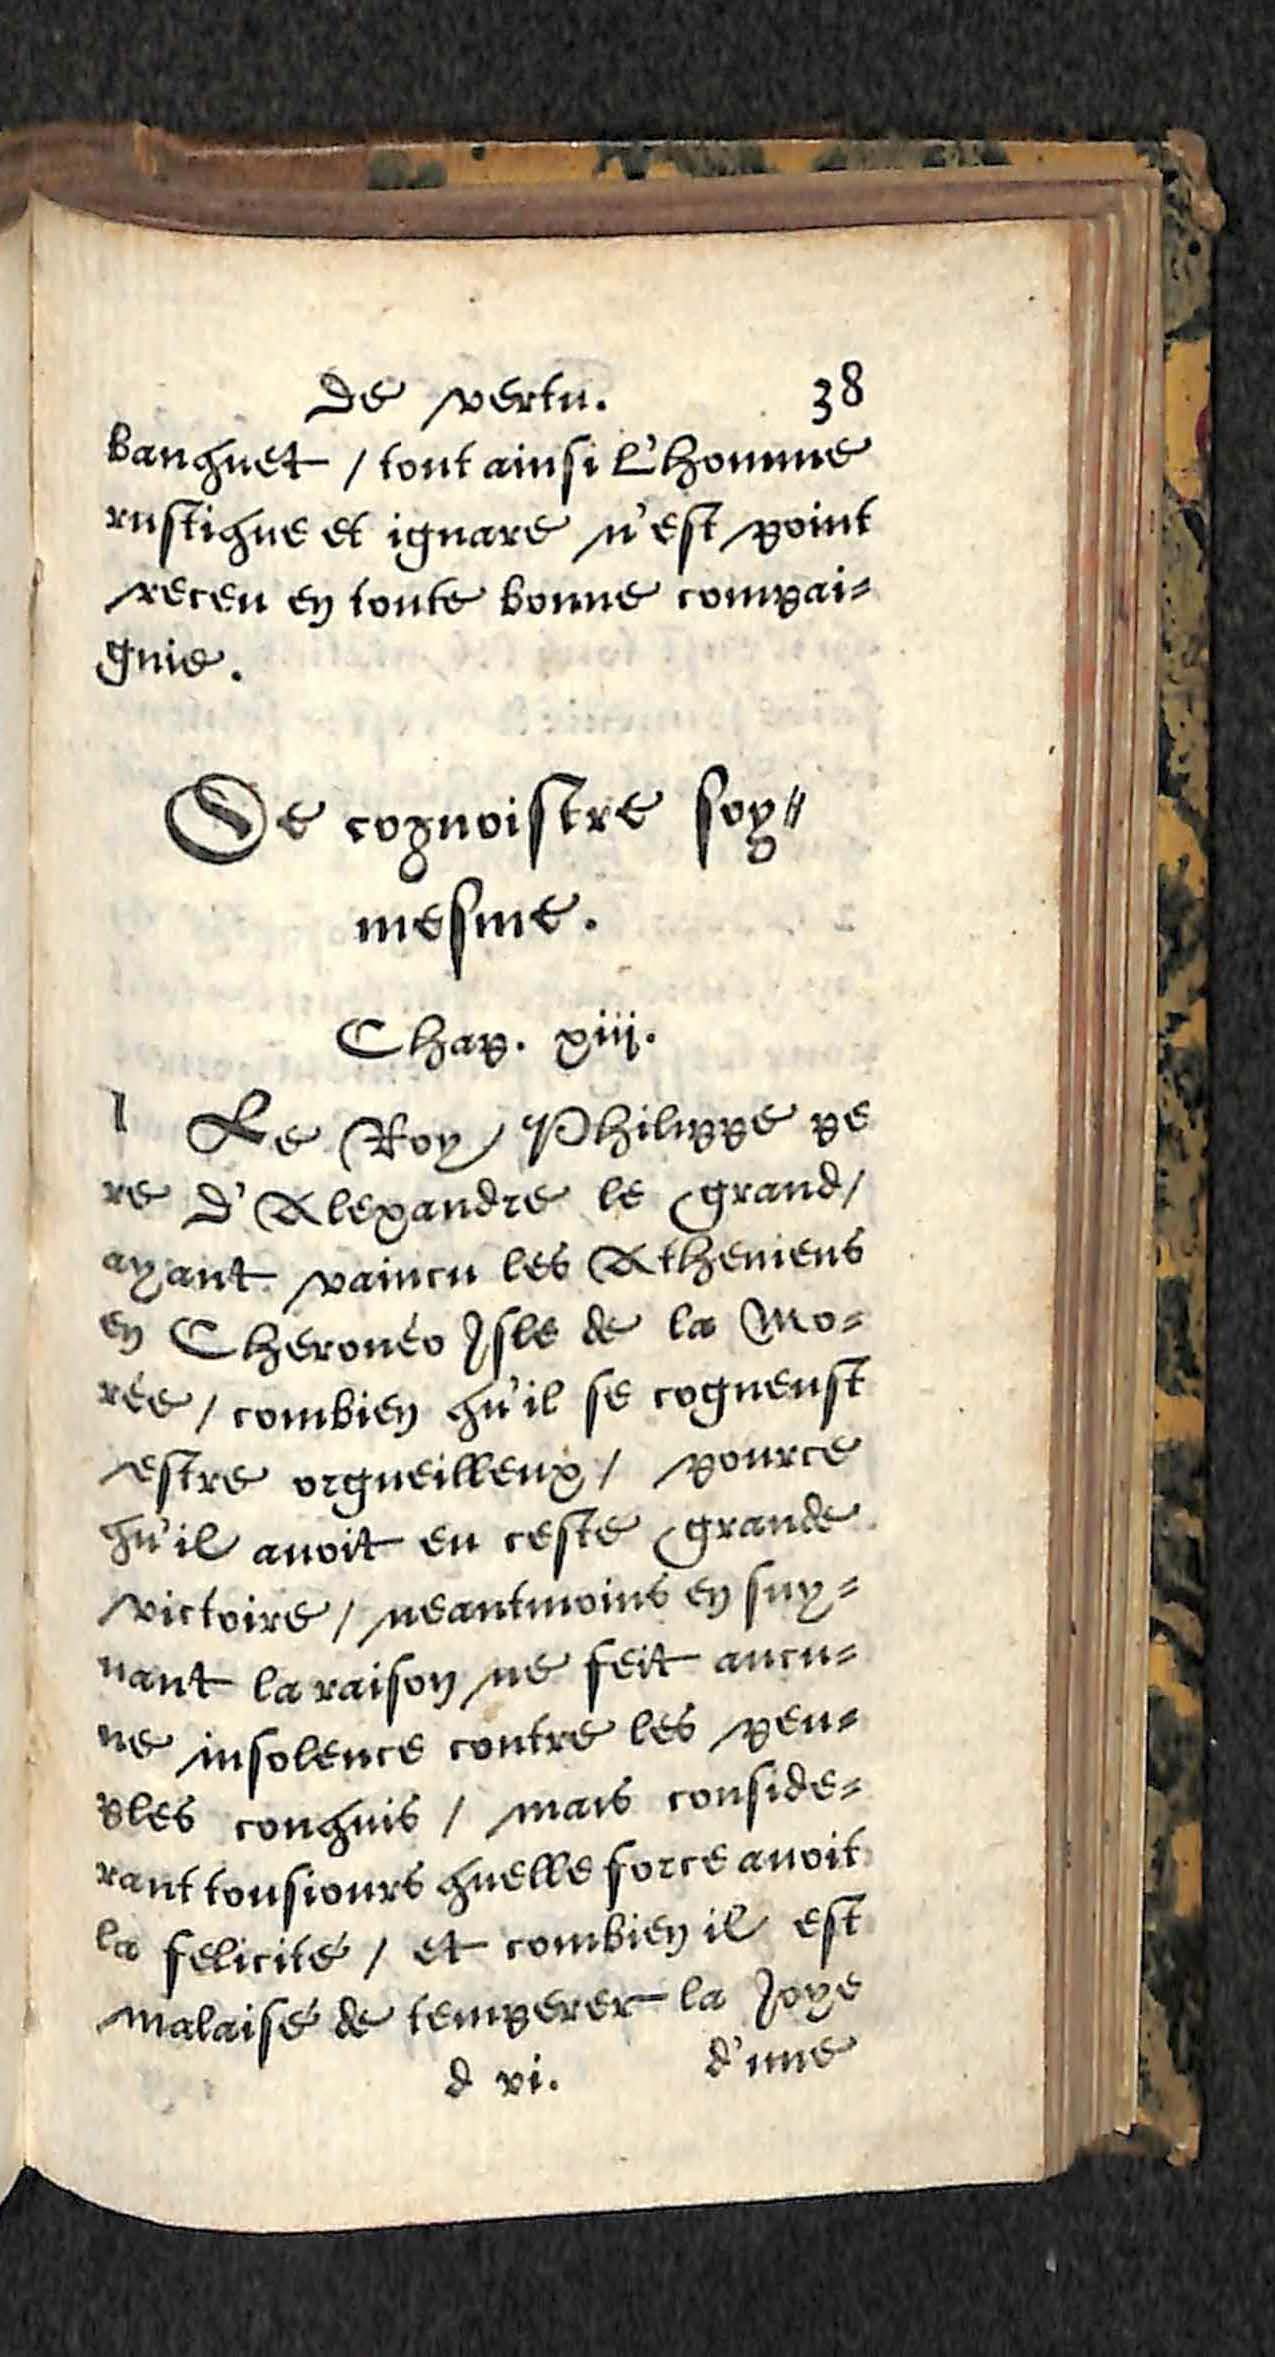 de vertu. 38
banquet / tout ainsi l'homme
rustique et ignare n'est point
receu en toute bonne compai=
gnie.
Se cognoistre soy=
mesme.
Chap. xiij.
1 Le Roy Philippe pe
re d'Alexandre le grand /
ayant vaincu les Atheniens
en Cheronéo Isle de la Mo=
rée / combien qu'il se cogneust
estre orgueilleux / pource
qu'il auoit eu ceste grande
victoire / neantmoins en suy=
uant la raison ne feit aucu=
ne insolence contre les peu=
ples conquis / mais conside=
rant tousiours quelle force auoit
la felicité / et combien il est
malaisé de temperer la Joye
d vi. d'une